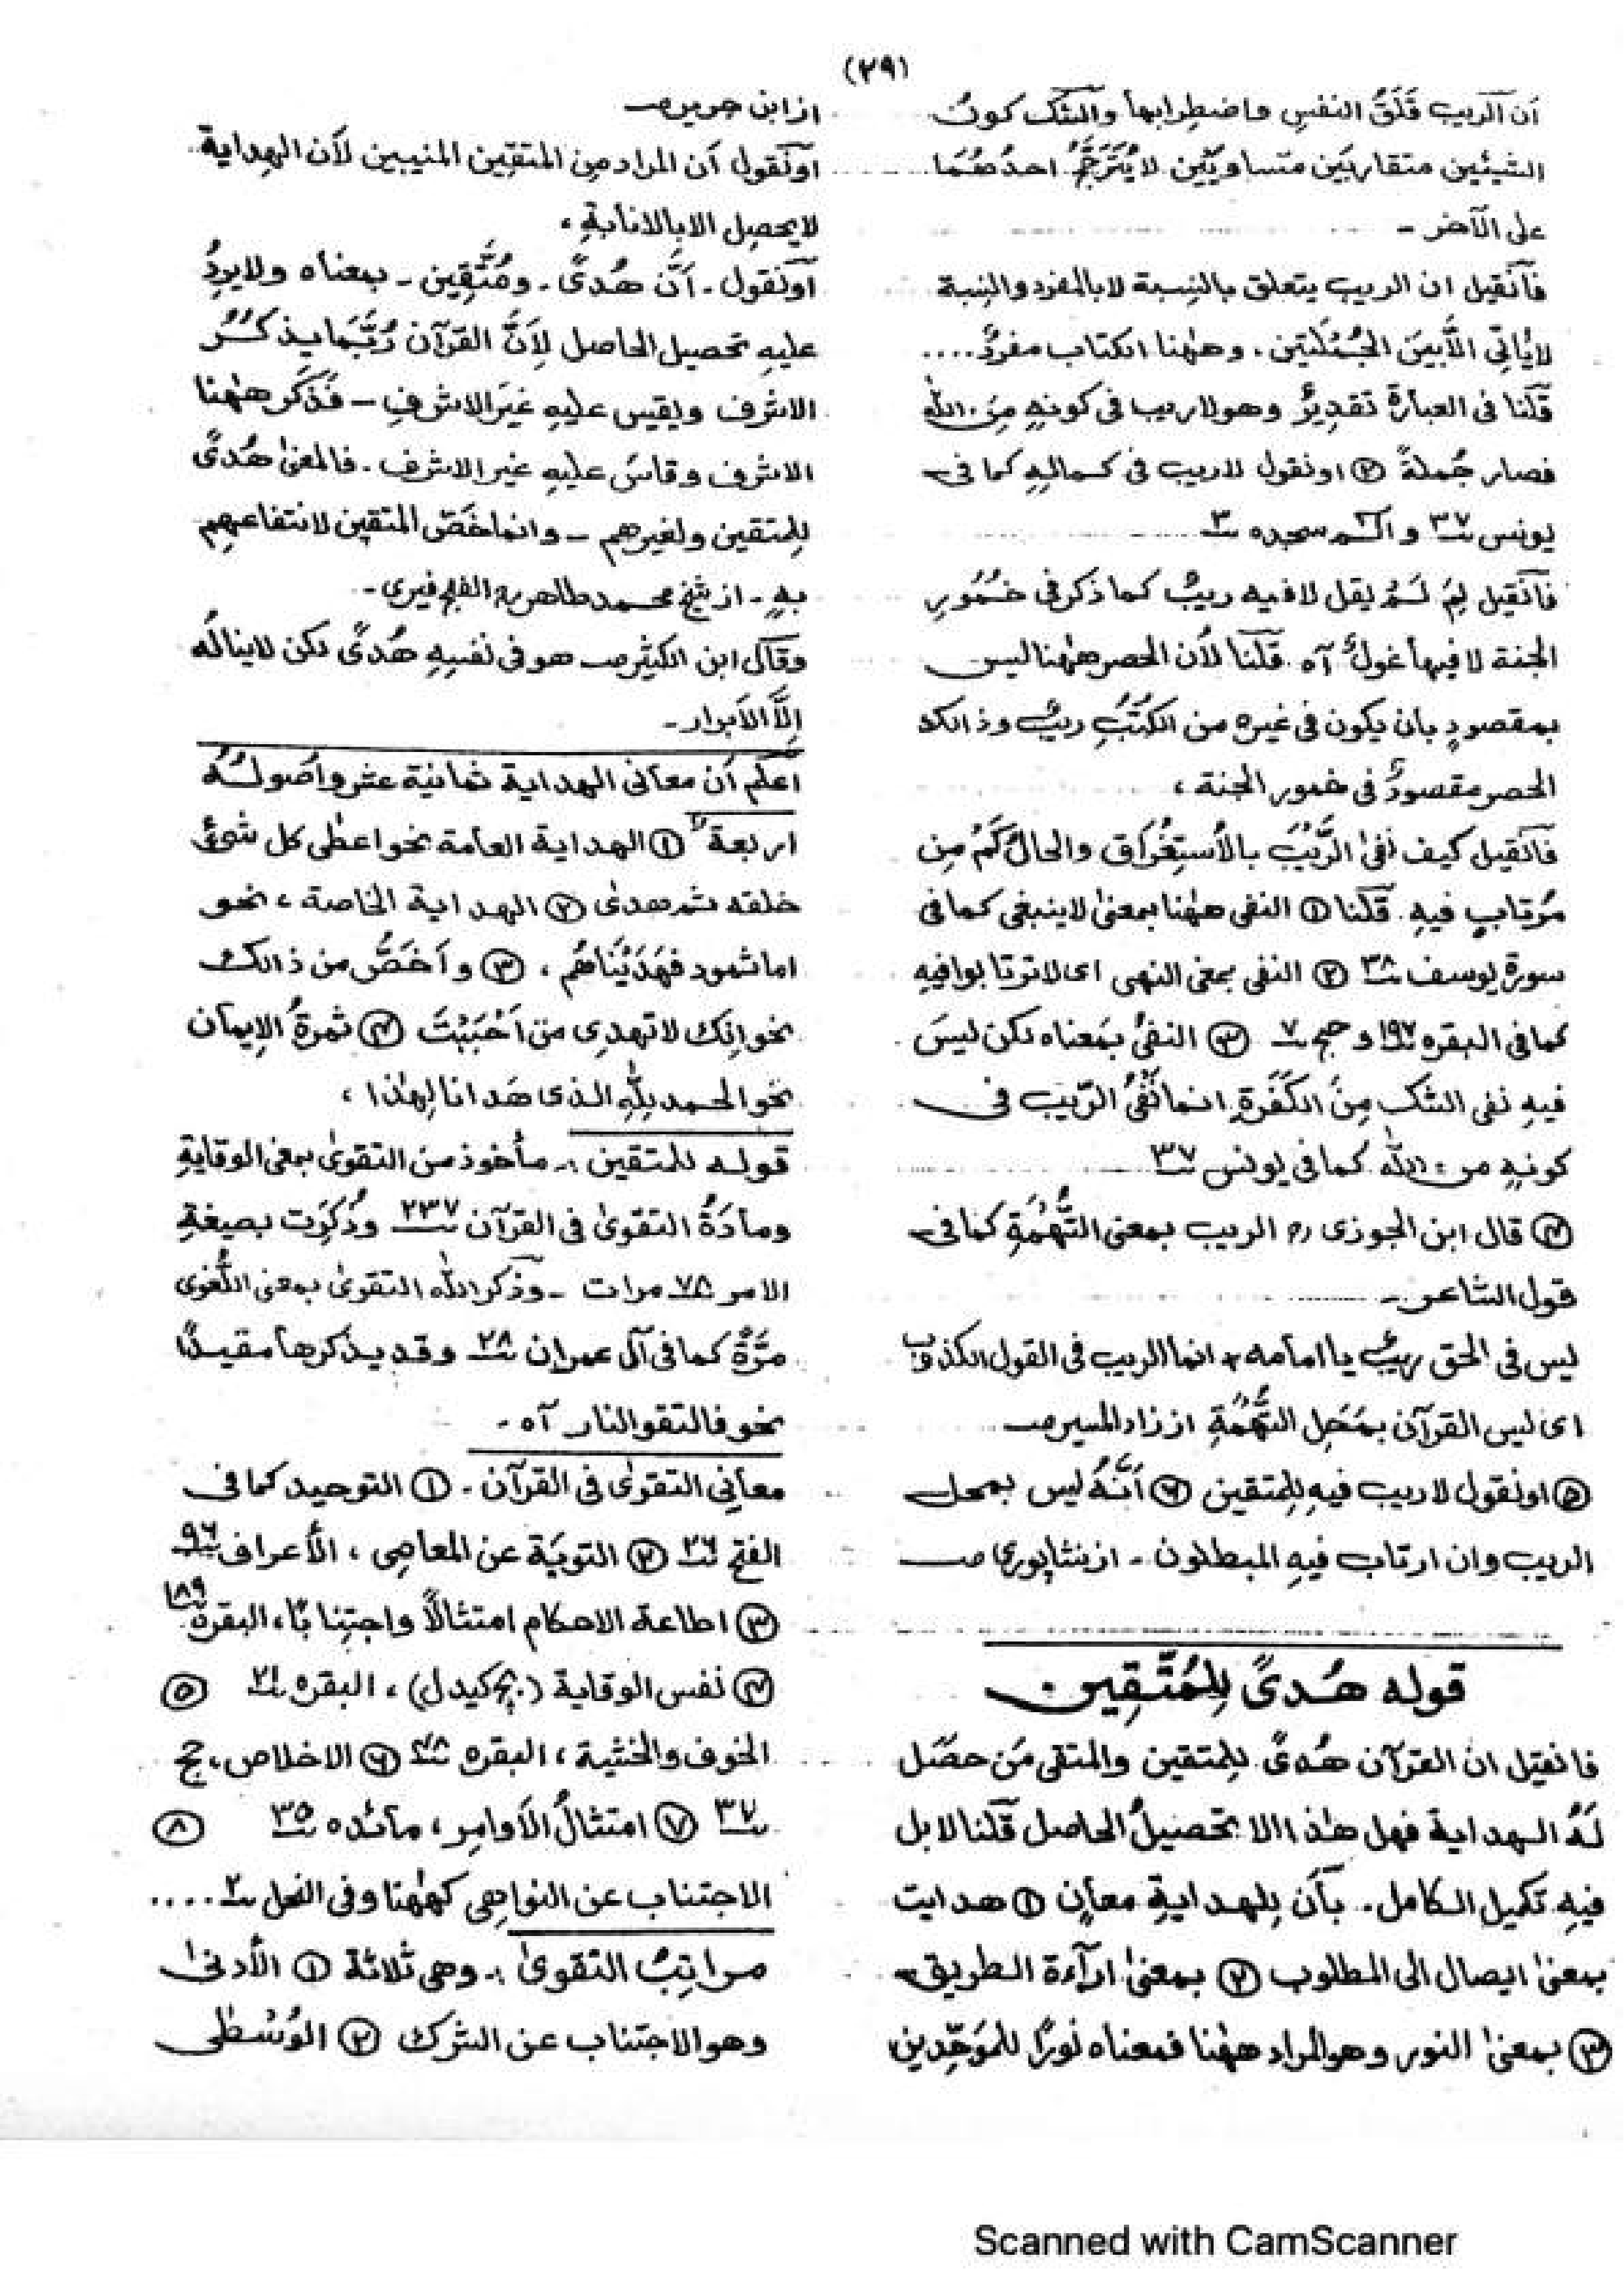 (٢٩)
أن الريب قَلَقُ النفسِ واضطرابها والشك كون
الشيئين متقاربَين متساويَين لا يُتَرَجَّحُ احدُهُمَا
على الآخر ـ
فإن قيل ان الريب يتعلق بالنِسبة لا بالمفرد والنِسبة
لا يأتي إلا بين الجُملتين ، وهٰهنا الكتاب مفردٌ ....
قلنا فى العبارة تقديرٌ وهو لا ريب فى كونهٖ مِنَ الله
فصار جُملةً ② او نقول لاريب فى كمالهٖ كما فى
يونس ٣٧ والٓم سجده ٣
فإن قيل لِمَ لَمْ يقل لا فيه ريبٌ كما ذكر فى خُمُورِ
الجنة لا فيها غولٌ آه . قلنا لأن الحصر هٰهنا ليس
بمقصودٍ بان يكون فى غيره من الكُتُبِ ريبٌ وذالك
الحصر مقصودٌ فى خمور الجنة ،
فإن قيل كيف نفىٰ الرَّيْبَ بالأستِغْرَاق والحالُ كَمْ مِن
مُرتابٍ فيهِ . قلنا ① النفى هٰهنا بمعنىٰ لا ينبغى كما فى
سورة يوسف ٣٨ ② النفى بمعنى النهى اى لا ترتابوا فيهِ
كما فى البقره ١٩٧ و حج ٧ ③ النفىُ بمَعناه لكن ليسَ
فيهِ نفى الشك مِنَ الكَفَرَةِ انما نُفْىُ الرّيب فى
كونهٖ من الله كما فى يونس ٣٧
④ قال ابن الجوزى رح الريب بمعنى التُّهْمَةِ كما فى
قول الشاعر ـ
ليس فى الحق ريبٌ يا امامه + انما الريب فى القول الكذوب
اى ليس القرآن بمَحَلِ التُّهْمَةِ از زاد المسير صـ
⑤ او نقول لاريب فيهِ للمتقين ⑥ أنَّهُ ليس بمحل
الريب وان ارتاب فيهِ المبطلون ـ از نيشاپورى صـ
قوله هُدىً لِلمُتَّقِين .
فان قيل ان القرآن هُدىً للمتقين والمتقى مَن حصَل
لَهُ الهداية فهل هٰذا الا تحصيلُ الحاصل قلنا لا بل
فيهِ تكميل الكامل . بأن للهدايةِ معانٍ ① هدايت
بمعنىٰ ايصال الى المطلوب ② بمعنىٰ ارآءة الطريق
③ بمعنىٰ النور وهو المراد هٰهنا فمعناه نورًا للمَوَحِّدين
از ابن جرير صـ
او نقول أن المراد مِن المتقين المنيبين لأن الهداية
لا يحصل الا بالانابةِ ،
او نقول ـ أنَّ هُدىً ـ ومُتَّقِين ـ بمعناه ولا يرِدُ
عليهِ تحصيل الحاصل لِأنَّ القرآن رُبَّمَا يذكُرُ
الاشرف ويقيس عليهِ غيَر الاشرفِ ـ فذَكَر هٰهنا
الاشرف وقاسَ عليهِ غير الاشرف . فالمعنىٰ هُدىً
للمتقين ولغيرهم ـ وانما خَصّ المتقين لانتفاعهِم
بهٖ ـ از شيخ محمد طاهر رح الفنجفيرى ـ
وقال ابن الكثير صـ هو فى نفسِهٖ هُدىً لكن لا ينالُه
إلاَّ الأبرار ـ
اعلم أن معانى الهداية ثمانية عشر وأصولُهُ
اربعة ① الهداية العامة نحو اعطٰى كل شئ
خلقه ثم هدىٰ ② الهداية الخاصة ، نحو
اما ثمود فهَدَيْنَاهُم ، ③ وأخَصُّ من ذالك
نحو اِنك لا تهدِى من أحْبَبْتَ ④ ثمرةُ الاِيمان
نحو الحمد لِلّٰهِ الذى هَدانا لِهٰذا ،
قوله للمتقين :ـ مأخوذ من التقوىٰ بمعنى الوقايةِ
ومادَةُ التقوىٰ فى القرآن ٢٣٧ وذُكِرَت بصيغةِ
الامر ٧٨ مرات ـ وذكر الله التقوىٰ بمعنى اللُّغوى
مرَّةً كما فى آل عمران ٢٨ وقد يذكرها مقيدًا
نحو فالتقوالنار آه ـ
معانِى التقوىٰ فى القرآن ـ ① التوحيد كما فى
الفتح ٢٦ ② التوبَة عن المعاصِى ، الأعراف ٩٦
③ اطاعة الاحكام امتثالًا واجتِنابًا ، البقره ١٨٩
④ نفس الوقاية ( بچ كيدل ) ، البقره ٢١ ⑤
الخوف والخشية ، البقره ٤٨ ⑥ الاخلاص ، حج
٣٧ ⑦ امتثالُ الأوامِر ، مآئده ٣٥ ⑧
الاجتناب عن النواهِى كهٰهنا وفى النحل ٢ ....
مراتِبُ التقوىٰ :ـ وهى ثلاثة ① الأدنىٰ
وهو الاجتناب عن الشرك ② الوُسْطٰى
Scanned with CamScanner